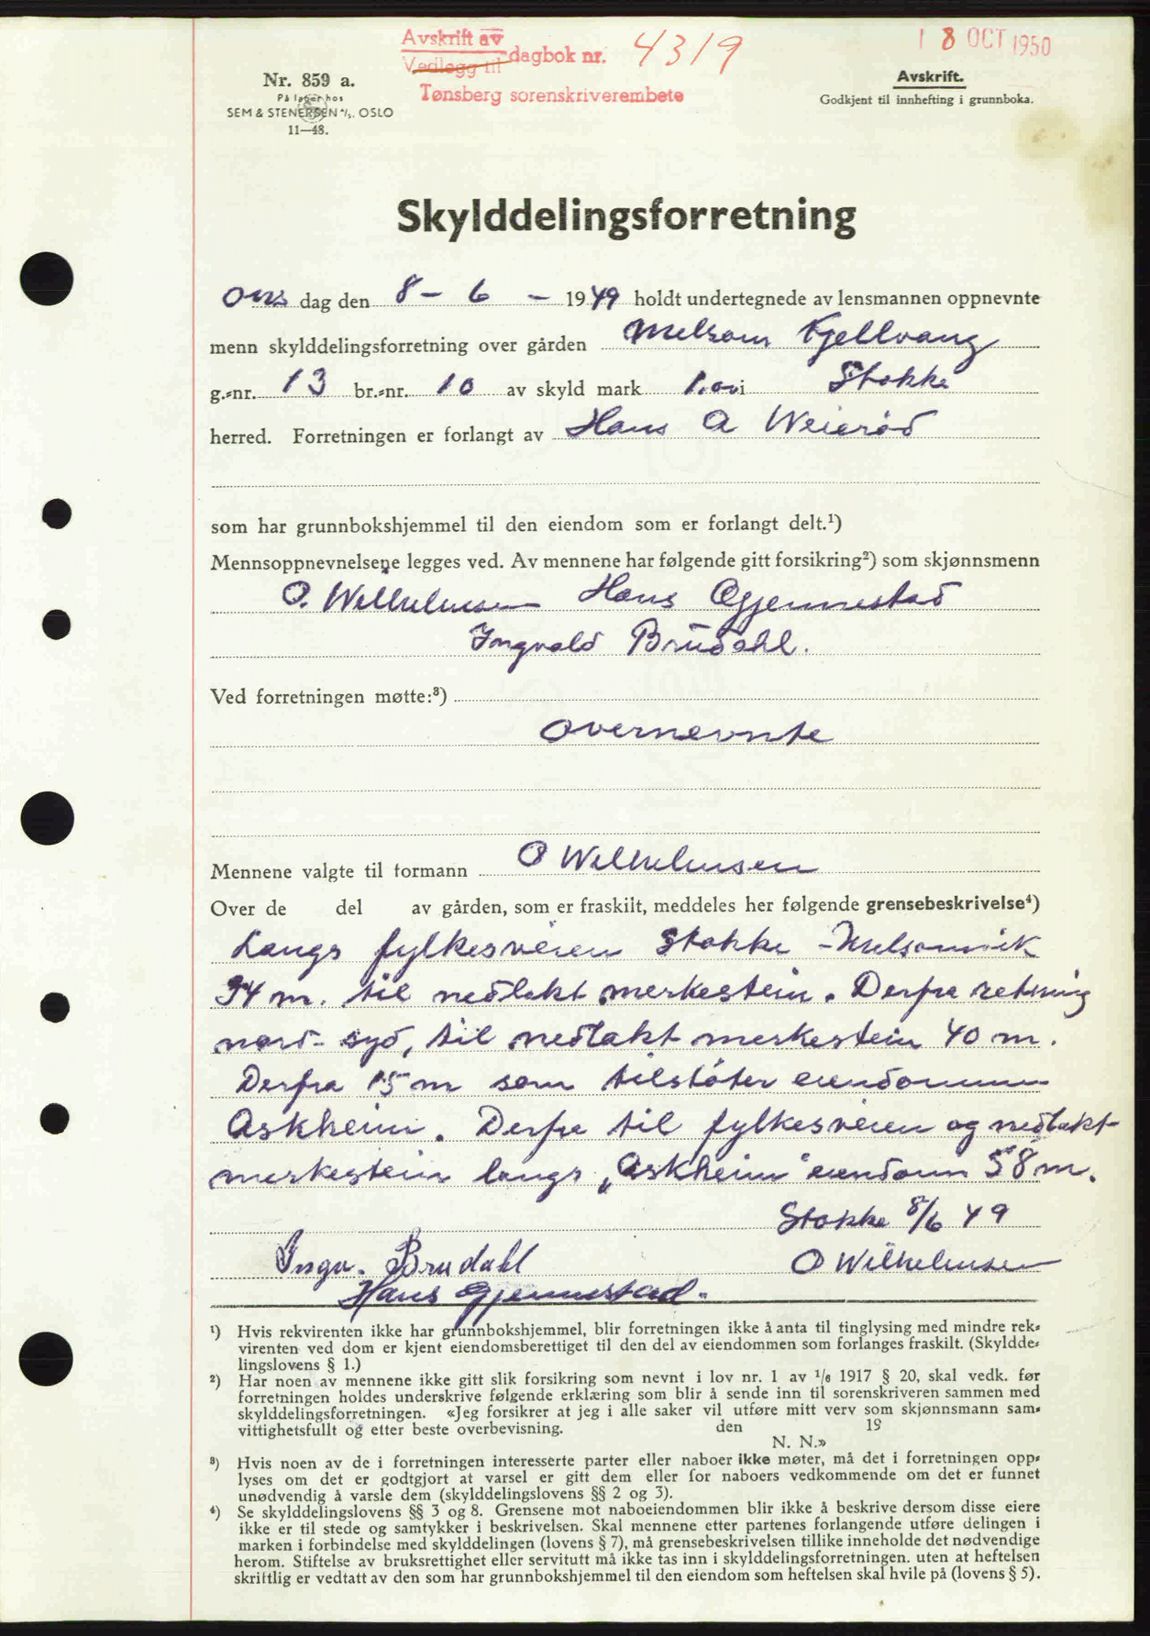 Avskrift av
Vedlegg til dagbok nr. 4319
Tønsberg sorenskriverembete
18 OCT 1950
Nr. 859 a.
På lager hos
SEM & STENERSEN A/S. OSLO
11—48.
Avskrift.
Godkjent til innhefting i grunnboka.
Skylddelingsforretning
Ons dag den 8 - 6 - 1949 holdt undertegnede av lensmannen oppnevnte
menn skylddelingsforretning over gården Melsom Fjellvang
g.-nr. 13 br.-nr. 10 av skyld mark 1.00 i Stokke
herred. Forretningen er forlangt av Hans A Weierød
som har grunnbokshjemmel til den eiendom som er forlangt delt.¹)
Mennsoppnevnelsene legges ved. Av mennene har følgende gitt forsikring²) som skjønnsmenn
O. Wilhelmsen Hans Gjennestad
Ingvald Brudahl.
Ved forretningen møtte:³)
Overnevnte
Mennene valgte til formann O Wilhelmsen
Over de del av gården, som er fraskilt, meddeles her følgende grensebeskrivelse⁴)
Langs fylkesveien Stokke - Melsomvik
34 m. til nedlakt merkestein. Derfra retning
nord - syd, til nedlakt merkestein 40 m.
Derfra 15 m som tilstöter eiendommen
Askheim. Derfra til fylkesveien og nedlakt
merkestein langs „Askheim" eiendom 58 m.
Stokke 8/6 49
Ingv. Brudahl O Wilhelmsen
Hans Gjennestad.
¹) Hvis rekvirenten ikke har grunnbokshjemmel, blir forretningen ikke å anta til tinglysing med mindre rek-
virenten ved dom er kjent eiendomsberettiget til den del av eiendommen som forlanges fraskilt. (Skyldde-
lingslovens § 1.)
²) Har noen av mennene ikke gitt slik forsikring som nevnt i lov nr. 1 av ¹/₆ 1917 § 20, skal vedk. før
forretningen holdes underskrive følgende erklæring som blir å sende inn til sorenskriveren sammen med
skylddelingsforretningen. «Jeg forsikrer at jeg i alle saker vil utføre mitt verv som skjønnsmann sam-
vittighetsfullt og etter beste overbevisning. den 19
N. N.»
³) Hvis noen av de i forretningen interesserte parter eller naboer ikke møter, må det i forretningen opp-
lyses om det er godtgjort at varsel er gitt dem eller for naboers vedkommende om det er funnet
unødvendig å varsle dem (skylddelingslovens §§ 2 og 3).
⁴) Se skylddelingslovens §§ 3 og 8. Grensene mot naboeiendommen blir ikke å beskrive dersom disse eiere
ikke er til stede og samtykker i beskrivelsen. Skal mennene etter partenes forlangende utføre delingen i
marken i forbindelse med skylddelingen (lovens § 7), må grensebeskrivelsen tillike inneholde det nødvendige
herom. Stiftelse av bruksrettighet eller servitutt må ikke tas inn i skylddelingsforretningen. uten at heftelsen
skriftlig er vedtatt av den som har grunnbokshjemmel til den eiendom som heftelsen skal hvile på (lovens § 5).